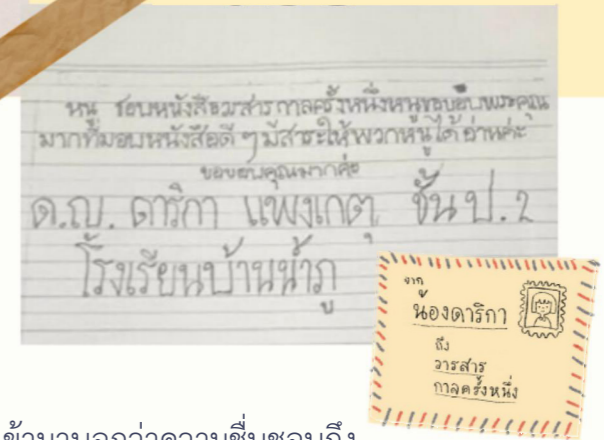 หนู ชอบหนังสือวารสารกาลครั้งหนึ่งหนูขอบอบพระคุณ
มากที่มอบหนังสือดี ๆ มีสาระให้พวกหนูได้อ่านค่ะ
ขอขอบคุณมากค่ะ
ด.ญ. ดาริกา แพงเกตุ ชั้น ป. ๒
โรงเรียนบ้านน้ำภู
จาก
น้องดาริกา
ถึง
วารสาร
กาลครั้งหนึ่ง